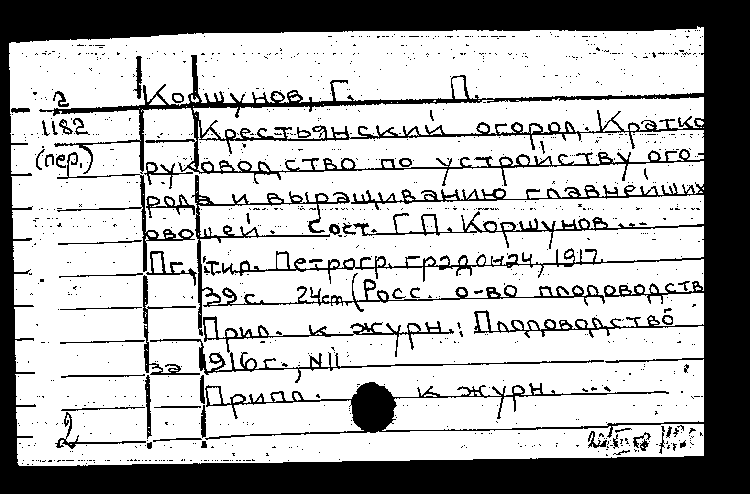 2
1182
(пер.)
Коршунов, Г. П.
Крестьянский огород. Кратко
руководство по устройству ого-
рода и выращиванию главнейших
овощей. Сост. Г.П. Коршунов...
Пг., тип. Петрогр. градонач., 1917.
39 с. 24cm. (Росс. о-во плодоводств
Прил. к журн.: Плодоводство
1916 г., N11
за
Прилп. к журн. ...
2